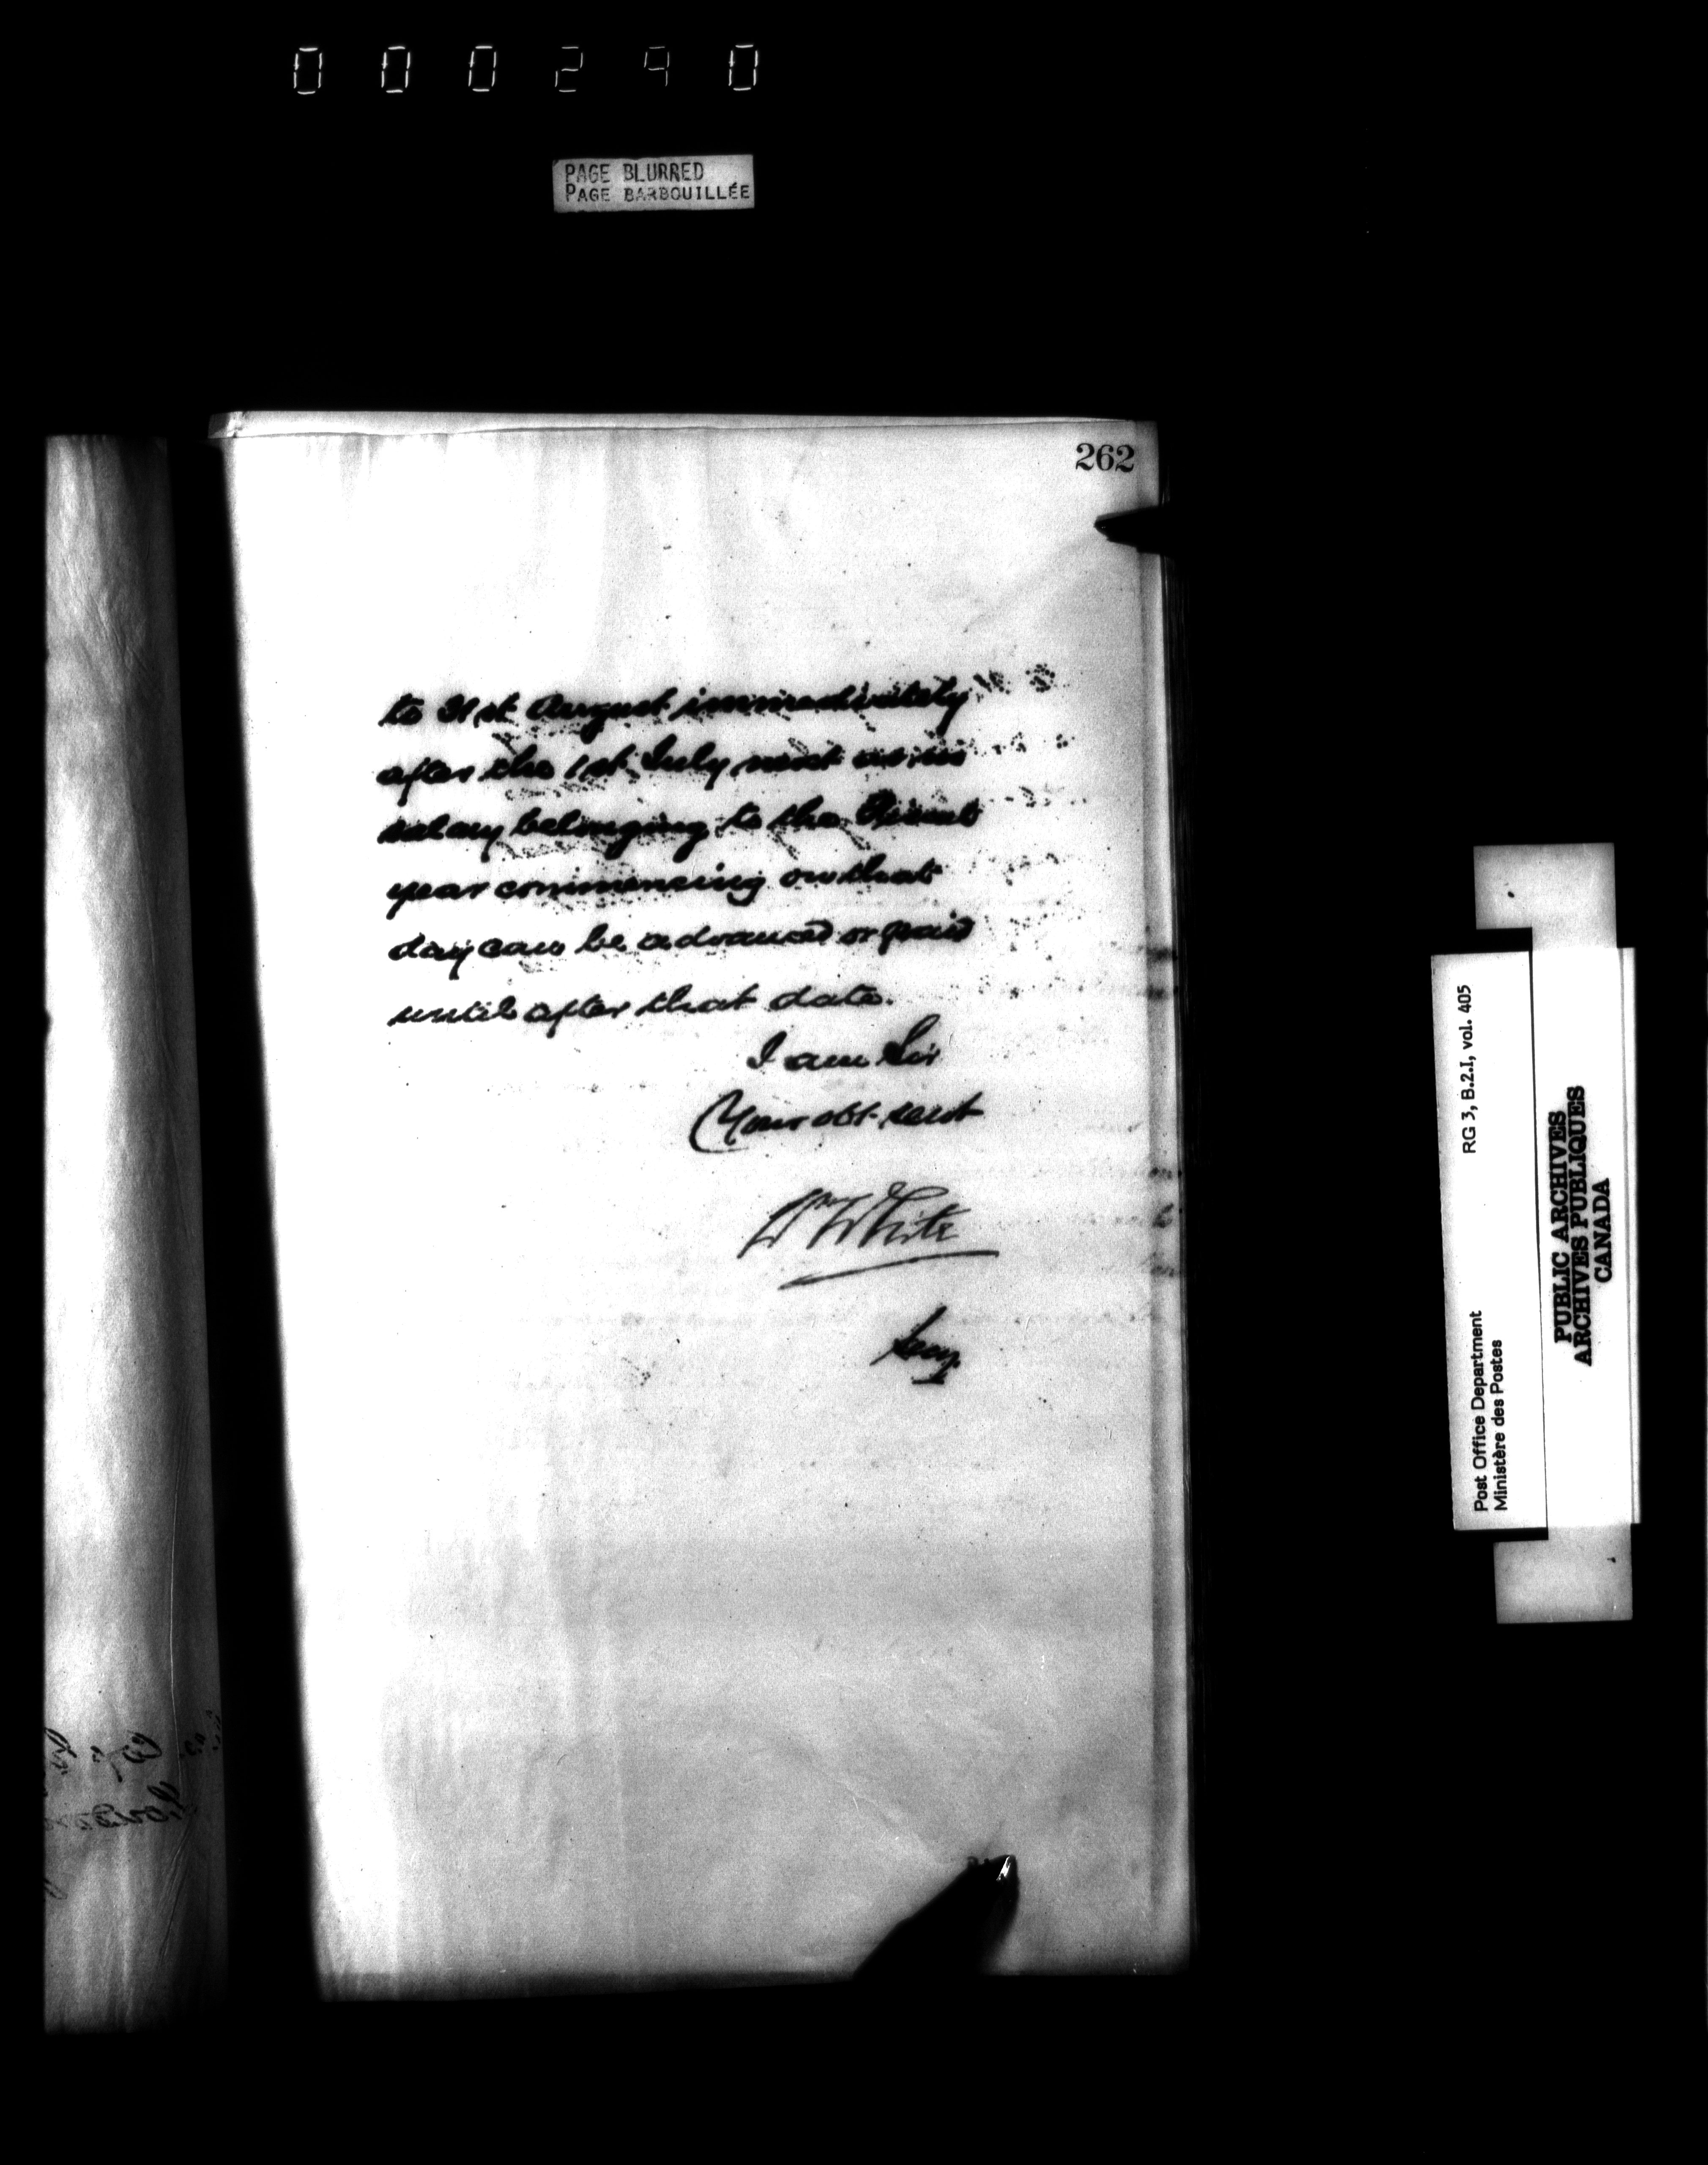 000290
PAGE BLURRED
PAGE BARBOUILLÉE
262
to 31st August immediately
after the 1st July next as no
salary belonging to the Fiscal
year commencing on that
day can be advanced or paid
until after that date.
I am Sir
Your obt. servt
Wm White
Secy.
Post Office Department RG 3, B.2.I, vol. 405
Ministère des Postes
PUBLIC ARCHIVES
ARCHIVES PUBLIQUES
CANADA